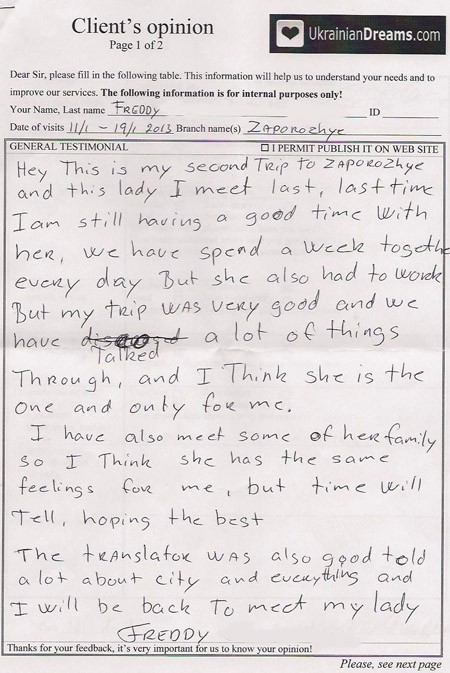 Client's opinion
Page 1 of 2
UkrainianDreams.com
Dear Sir, please fill in the following table. This information will help us to understand your needs and to
improve our services. The following information is for internal purposes only!
Your Name, Last name FREDDY ID
Date of visits 11/1 - 19/1 2013 Branch name(s) ZAPOROZHYE
GENERAL TESTIMONIAL I PERMIT PUBLISH IT ON WEB SITE
Hey This is my second Trip to ZAPOROZHYE
and this lady I meet last, last time
I am still having a good time with
her, we have spend a week togethe
every day But she also had to work
But my trip was very good and we
have a lot of things
Talked
Through, and I Think she is the
one and only for me.
I have also meet some of her family
so I Think she has the same
feelings for me, but time will
Tell, hoping the best
The translator was also good told
a lot about city and everything and
I will be back To meet my lady
FREDDY
Thanks for your feedback, it's very important for us to know your opinion!
Please, see next page